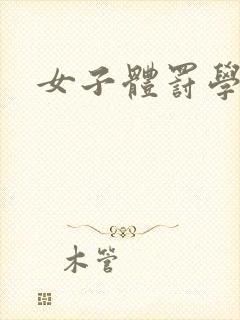 女子體罰學
木管